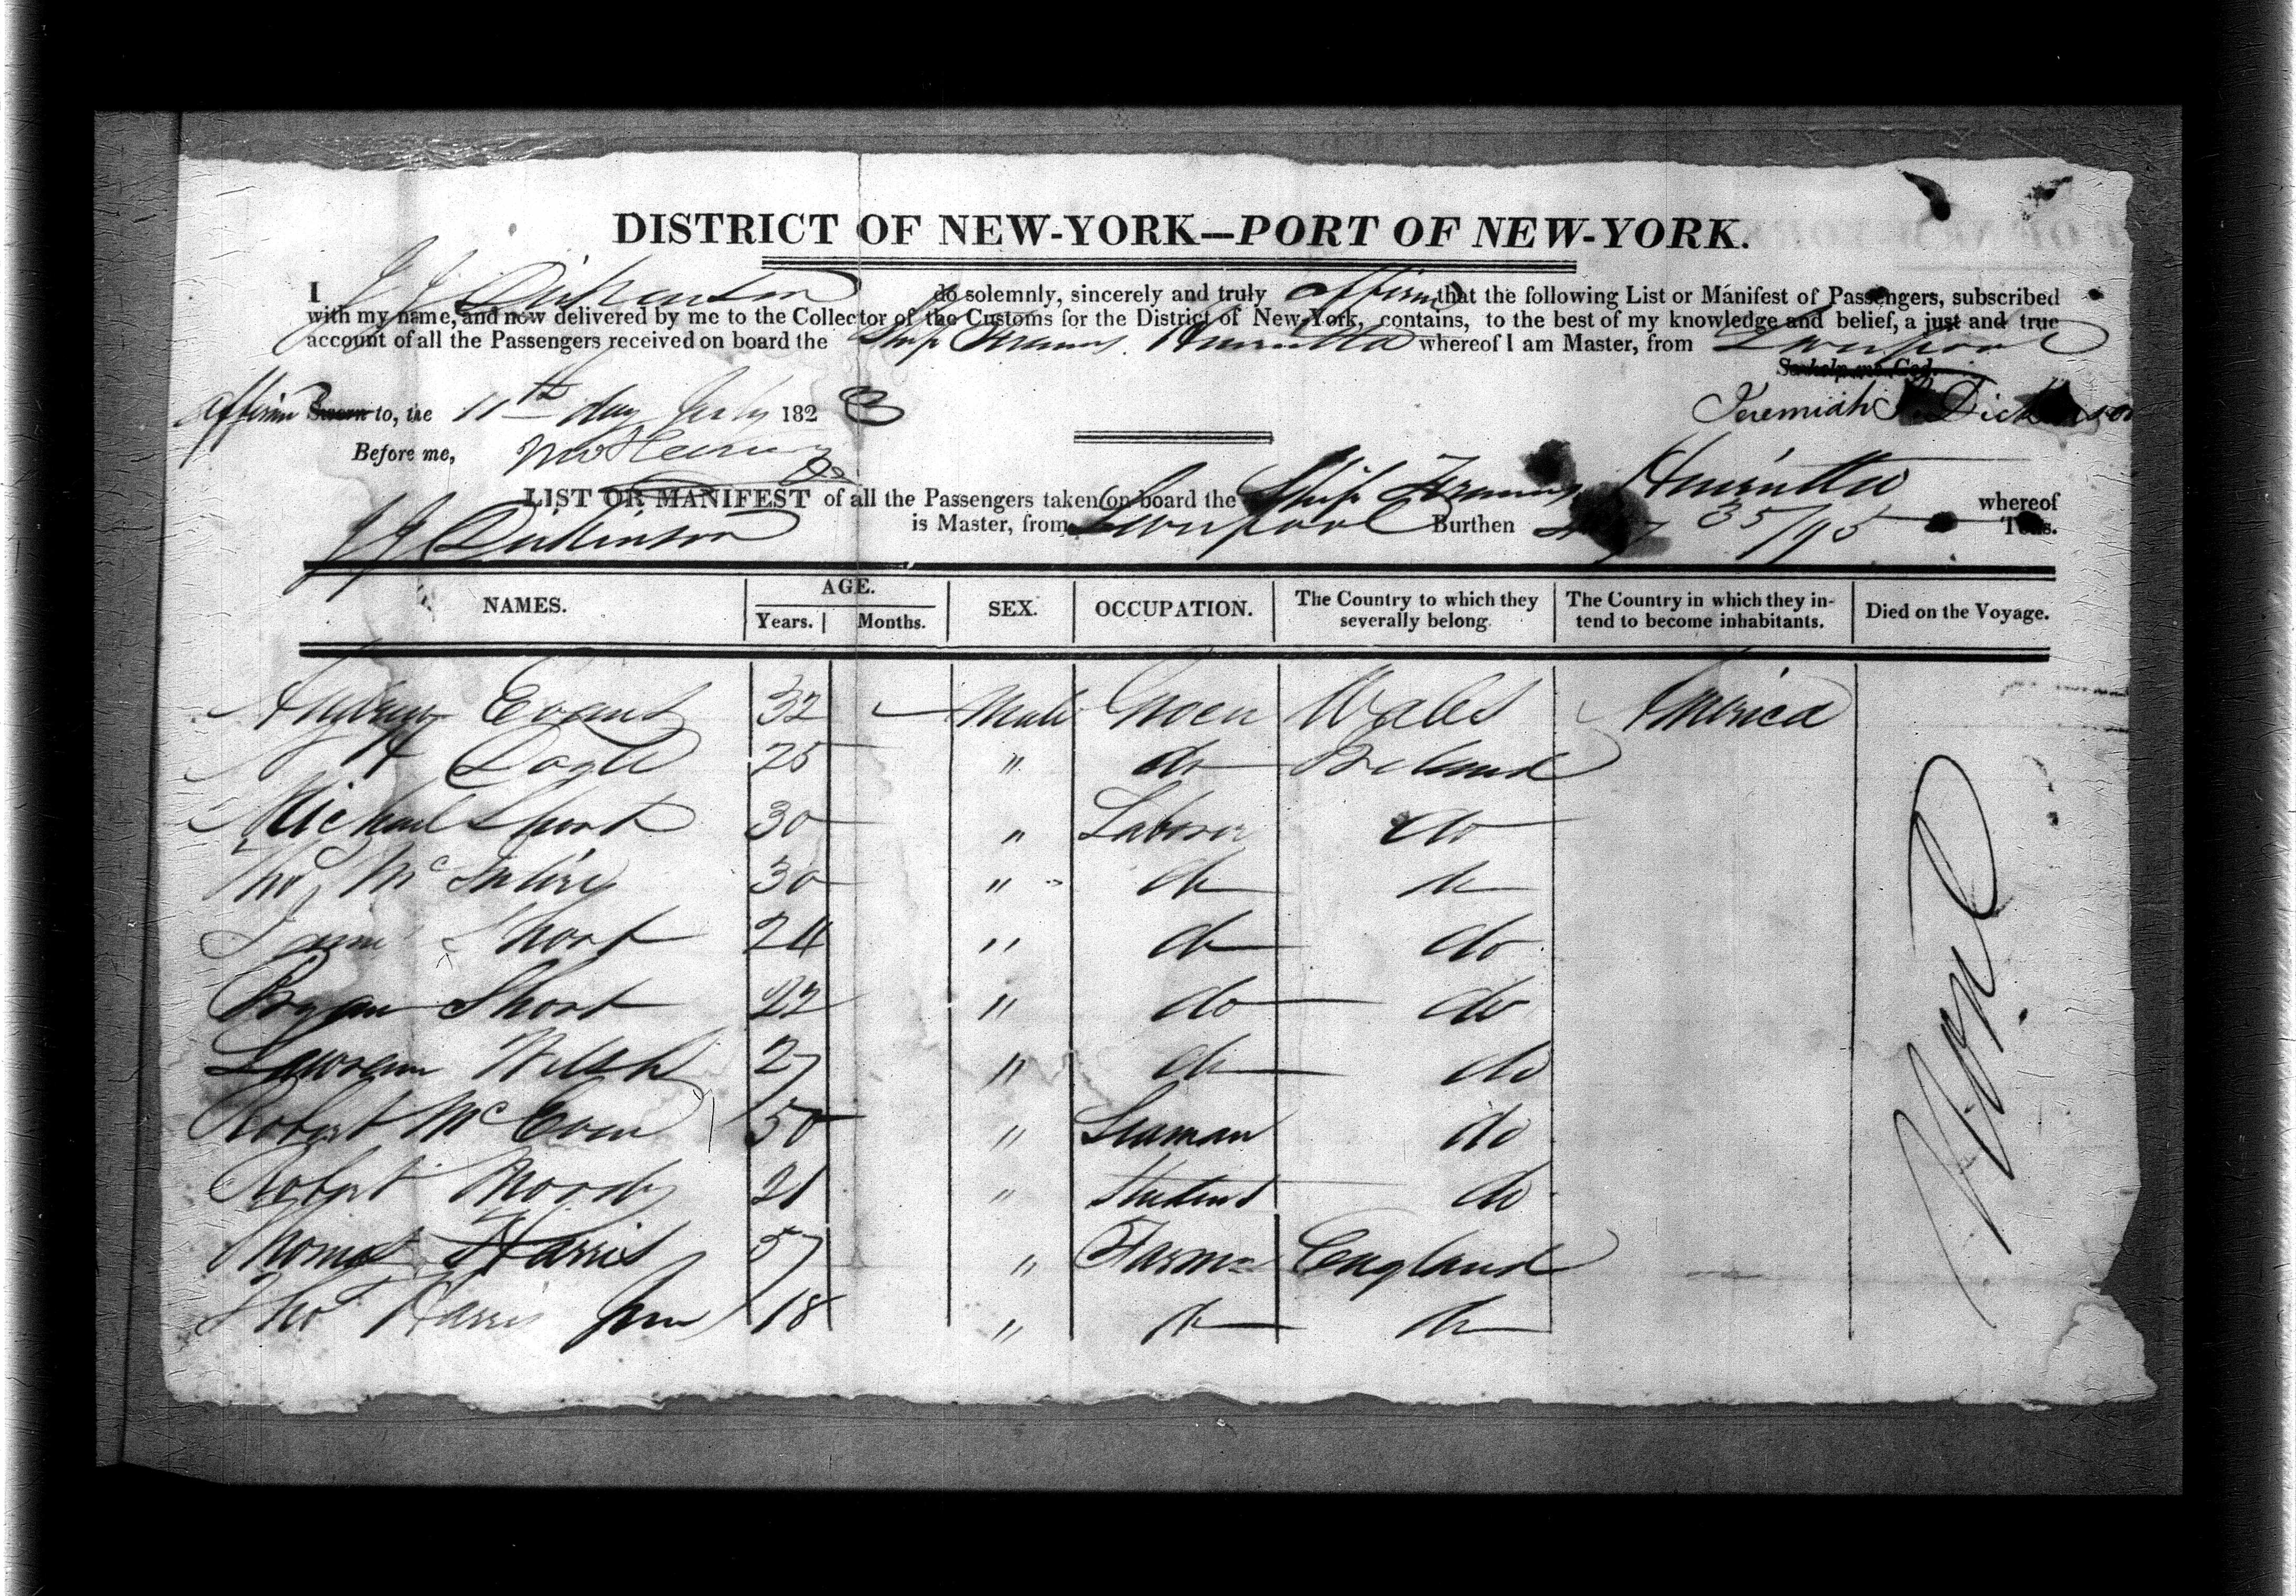 DISTRICT OF NEW-YORK—PORT OF NEW-YORK.
I J J Dickenson do solemnly, sincerely and truly affirm that the following List or Manifest of Passengers, subscribed
with my name, and now delivered by me to the Collector of the Customs for the District of New York, contains, to the best of my knowledge and belief, a just and true
account of all the Passengers received on board the Ship Francis Henrietta whereof I am Master, from Liverpool
So help me God.
affirm Sworn to, the 11th day July 1823
Jeremiah Dickenson
Before me,
LIST OR MANIFEST of all the Passengers taken on board the Ship Francis Henrietta whereof
J J Dickinson is Master, from Liverpool Burthen 35/95 Tons.
NAMES. AGE. SEX. OCCUPATION. The Country to which they severally belong. The Country in which they intend to become inhabitants. Died on the Voyage.
Years. Months.
Andrew Evans 32 Male Grocer Wales America
25 " do Ireland
Michael Short 30 " Laborer do
Thos Mc 30 " do do
James Short 24 " do do
Bryan Short 22 " do do
Lawrence Welsh 27 " do do
Robert McEwen 50 " Seaman do
Robert Moody 21 " Student do
Thomas Harris 57 " Farmer England
Thos Harris Junr 18 " do do
None